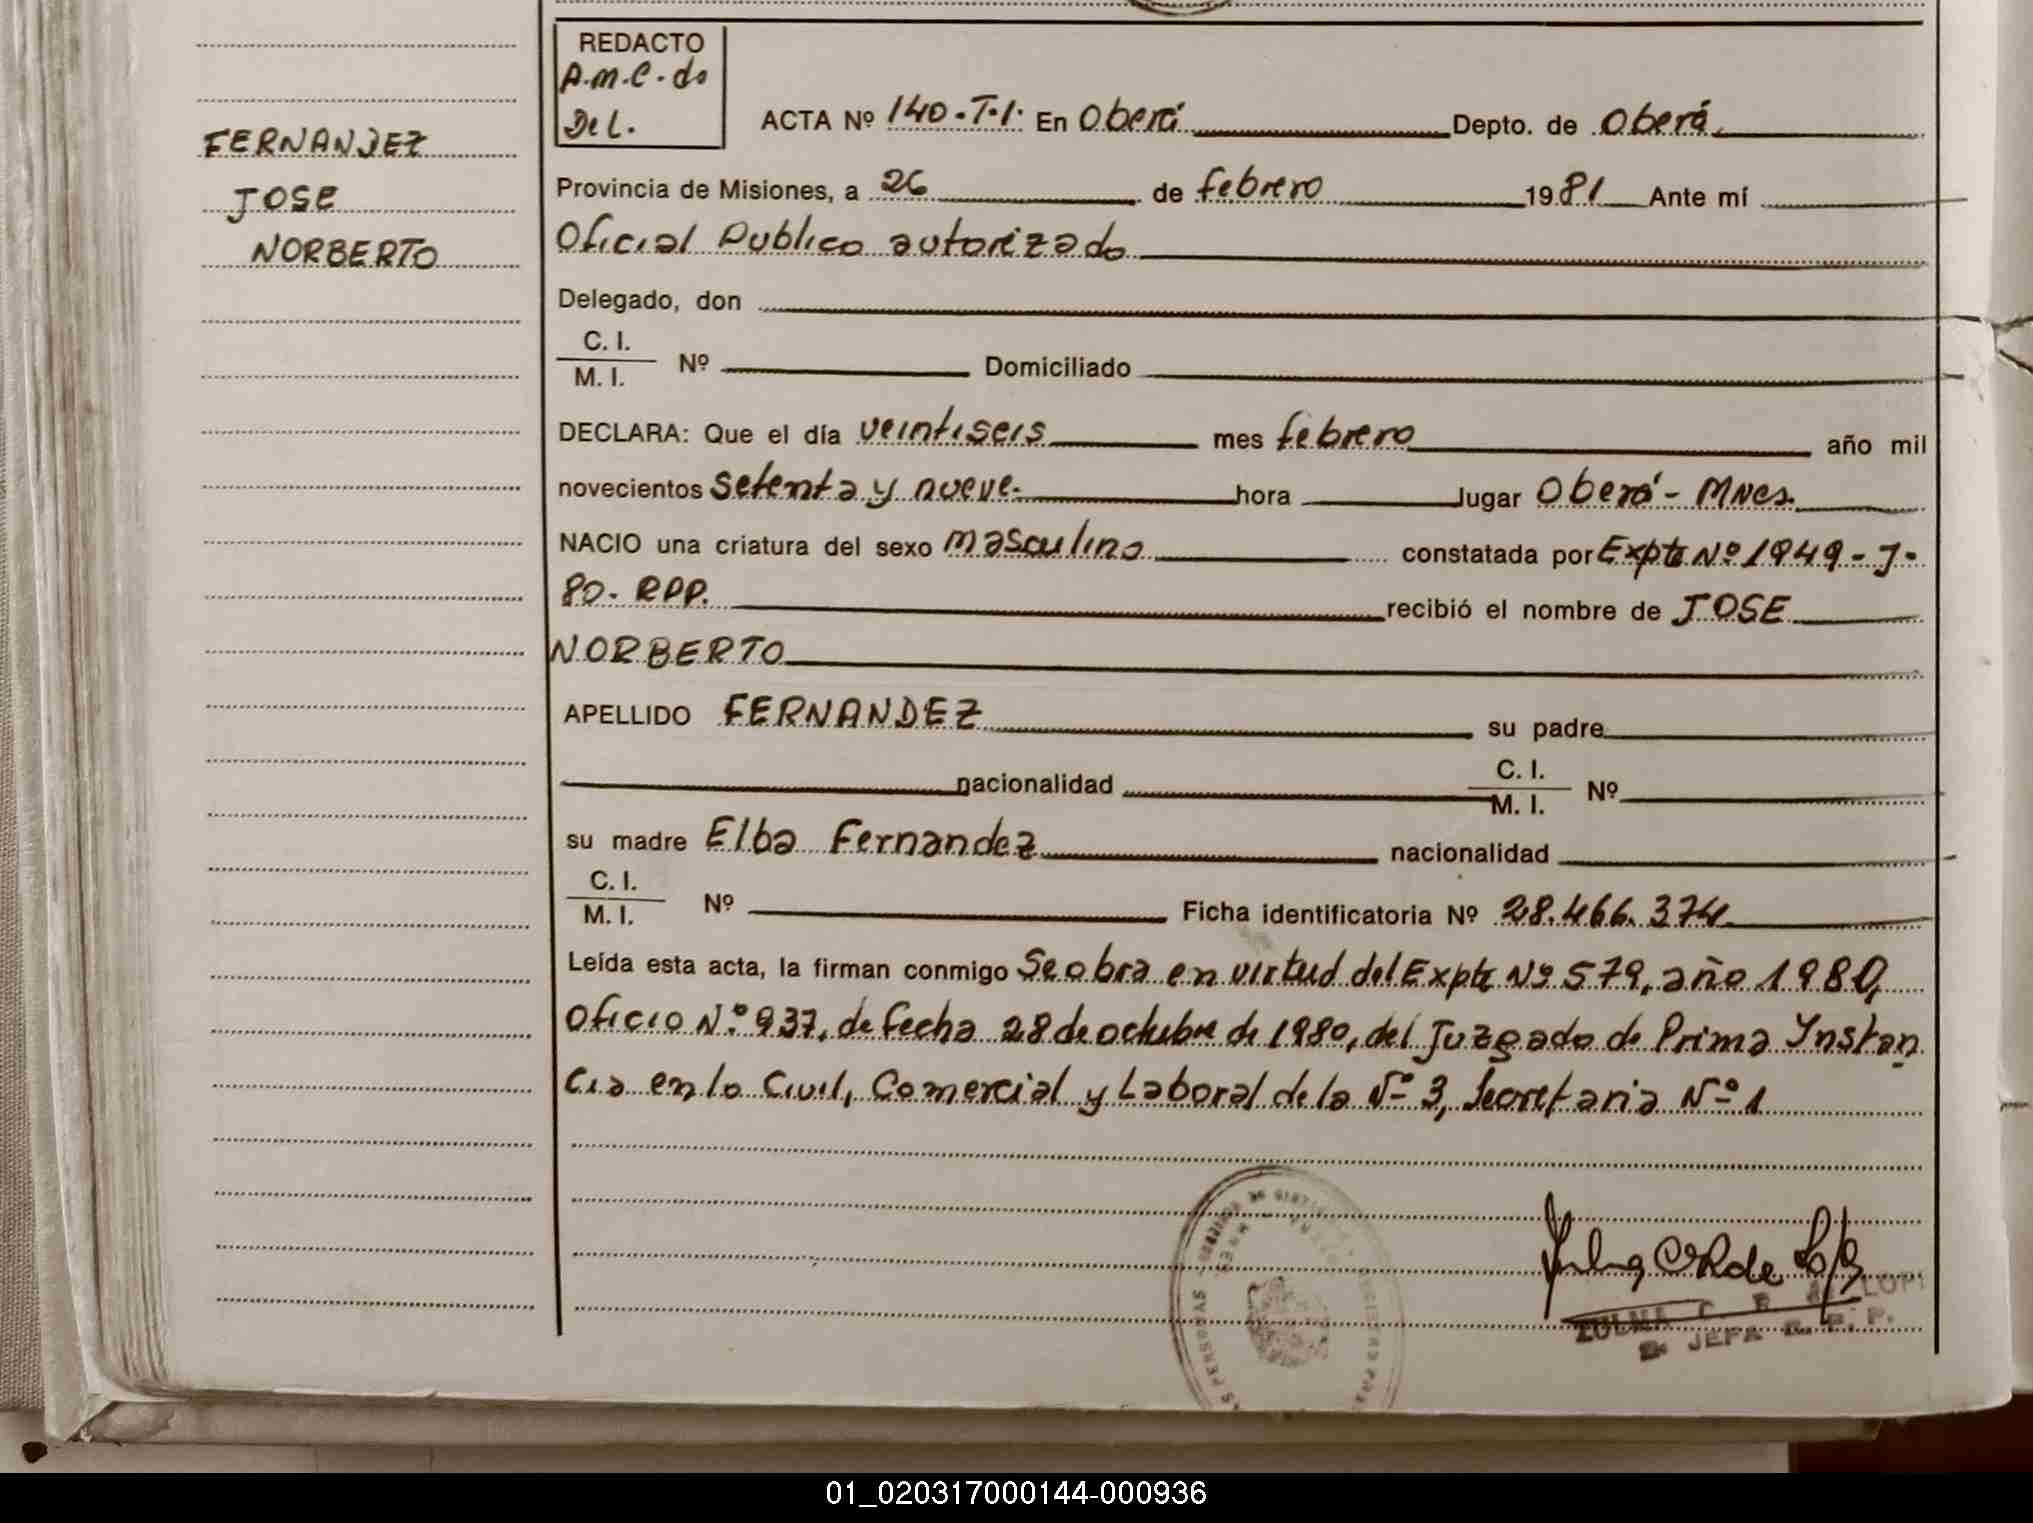 FERNANDEZ
JOSE
NORBERTO
REDACTO
A.M.C. do
Del.
ACTA Nº 140-T.I. En Oberá Depto. de Oberá
Provincia de Misiones, a 26 de febrero 1981 Ante mí
Oficial Publico autorizado
Delegado, don
C. I.
M. I. Nº Domiciliado
DECLARA: Que el día veintiseis mes febrero año mil
novecientos setenta y nueve. hora lugar Oberá - Mnes.
NACIO una criatura del sexo masculino constatada por Expte Nº 1949 - J -
80. RPP. recibió el nombre de JOSE
NORBERTO
APELLIDO FERNANDEZ su padre
nacionalidad C. I.
M. I. Nº
su madre Elba Fernandez nacionalidad
C. I.
M. I. Nº Ficha identificatoria Nº 28.466.374
Leída esta acta, la firman conmigo Se obra en virtud del Expte Nº 579, año 1980,
Oficio Nº 937, de fecha 28 de octubre de 1980, del Juzgado de Prima Instan
cia en lo Civil, Comercial y Laboral de la Nº 3, Secretaria Nº 1
ZULMA C. R. de LOP
JEFA R. P. P.
PERSONAS
01_020317000144-000936